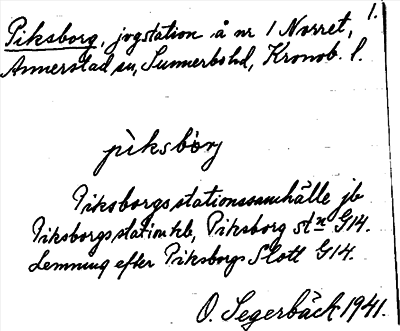 1.
Piksborg, jvgstation å nr 1 Norret,
Annerstad sn, Sunnerbo hd, Kronob. l.
pìksbòrj
Piksborgs stationssamhälle jb
Piksborgs station kb, Piksborg stn G14.
Lemning efter Piksborgs Slott G14.
O. Segerbäck 1941.